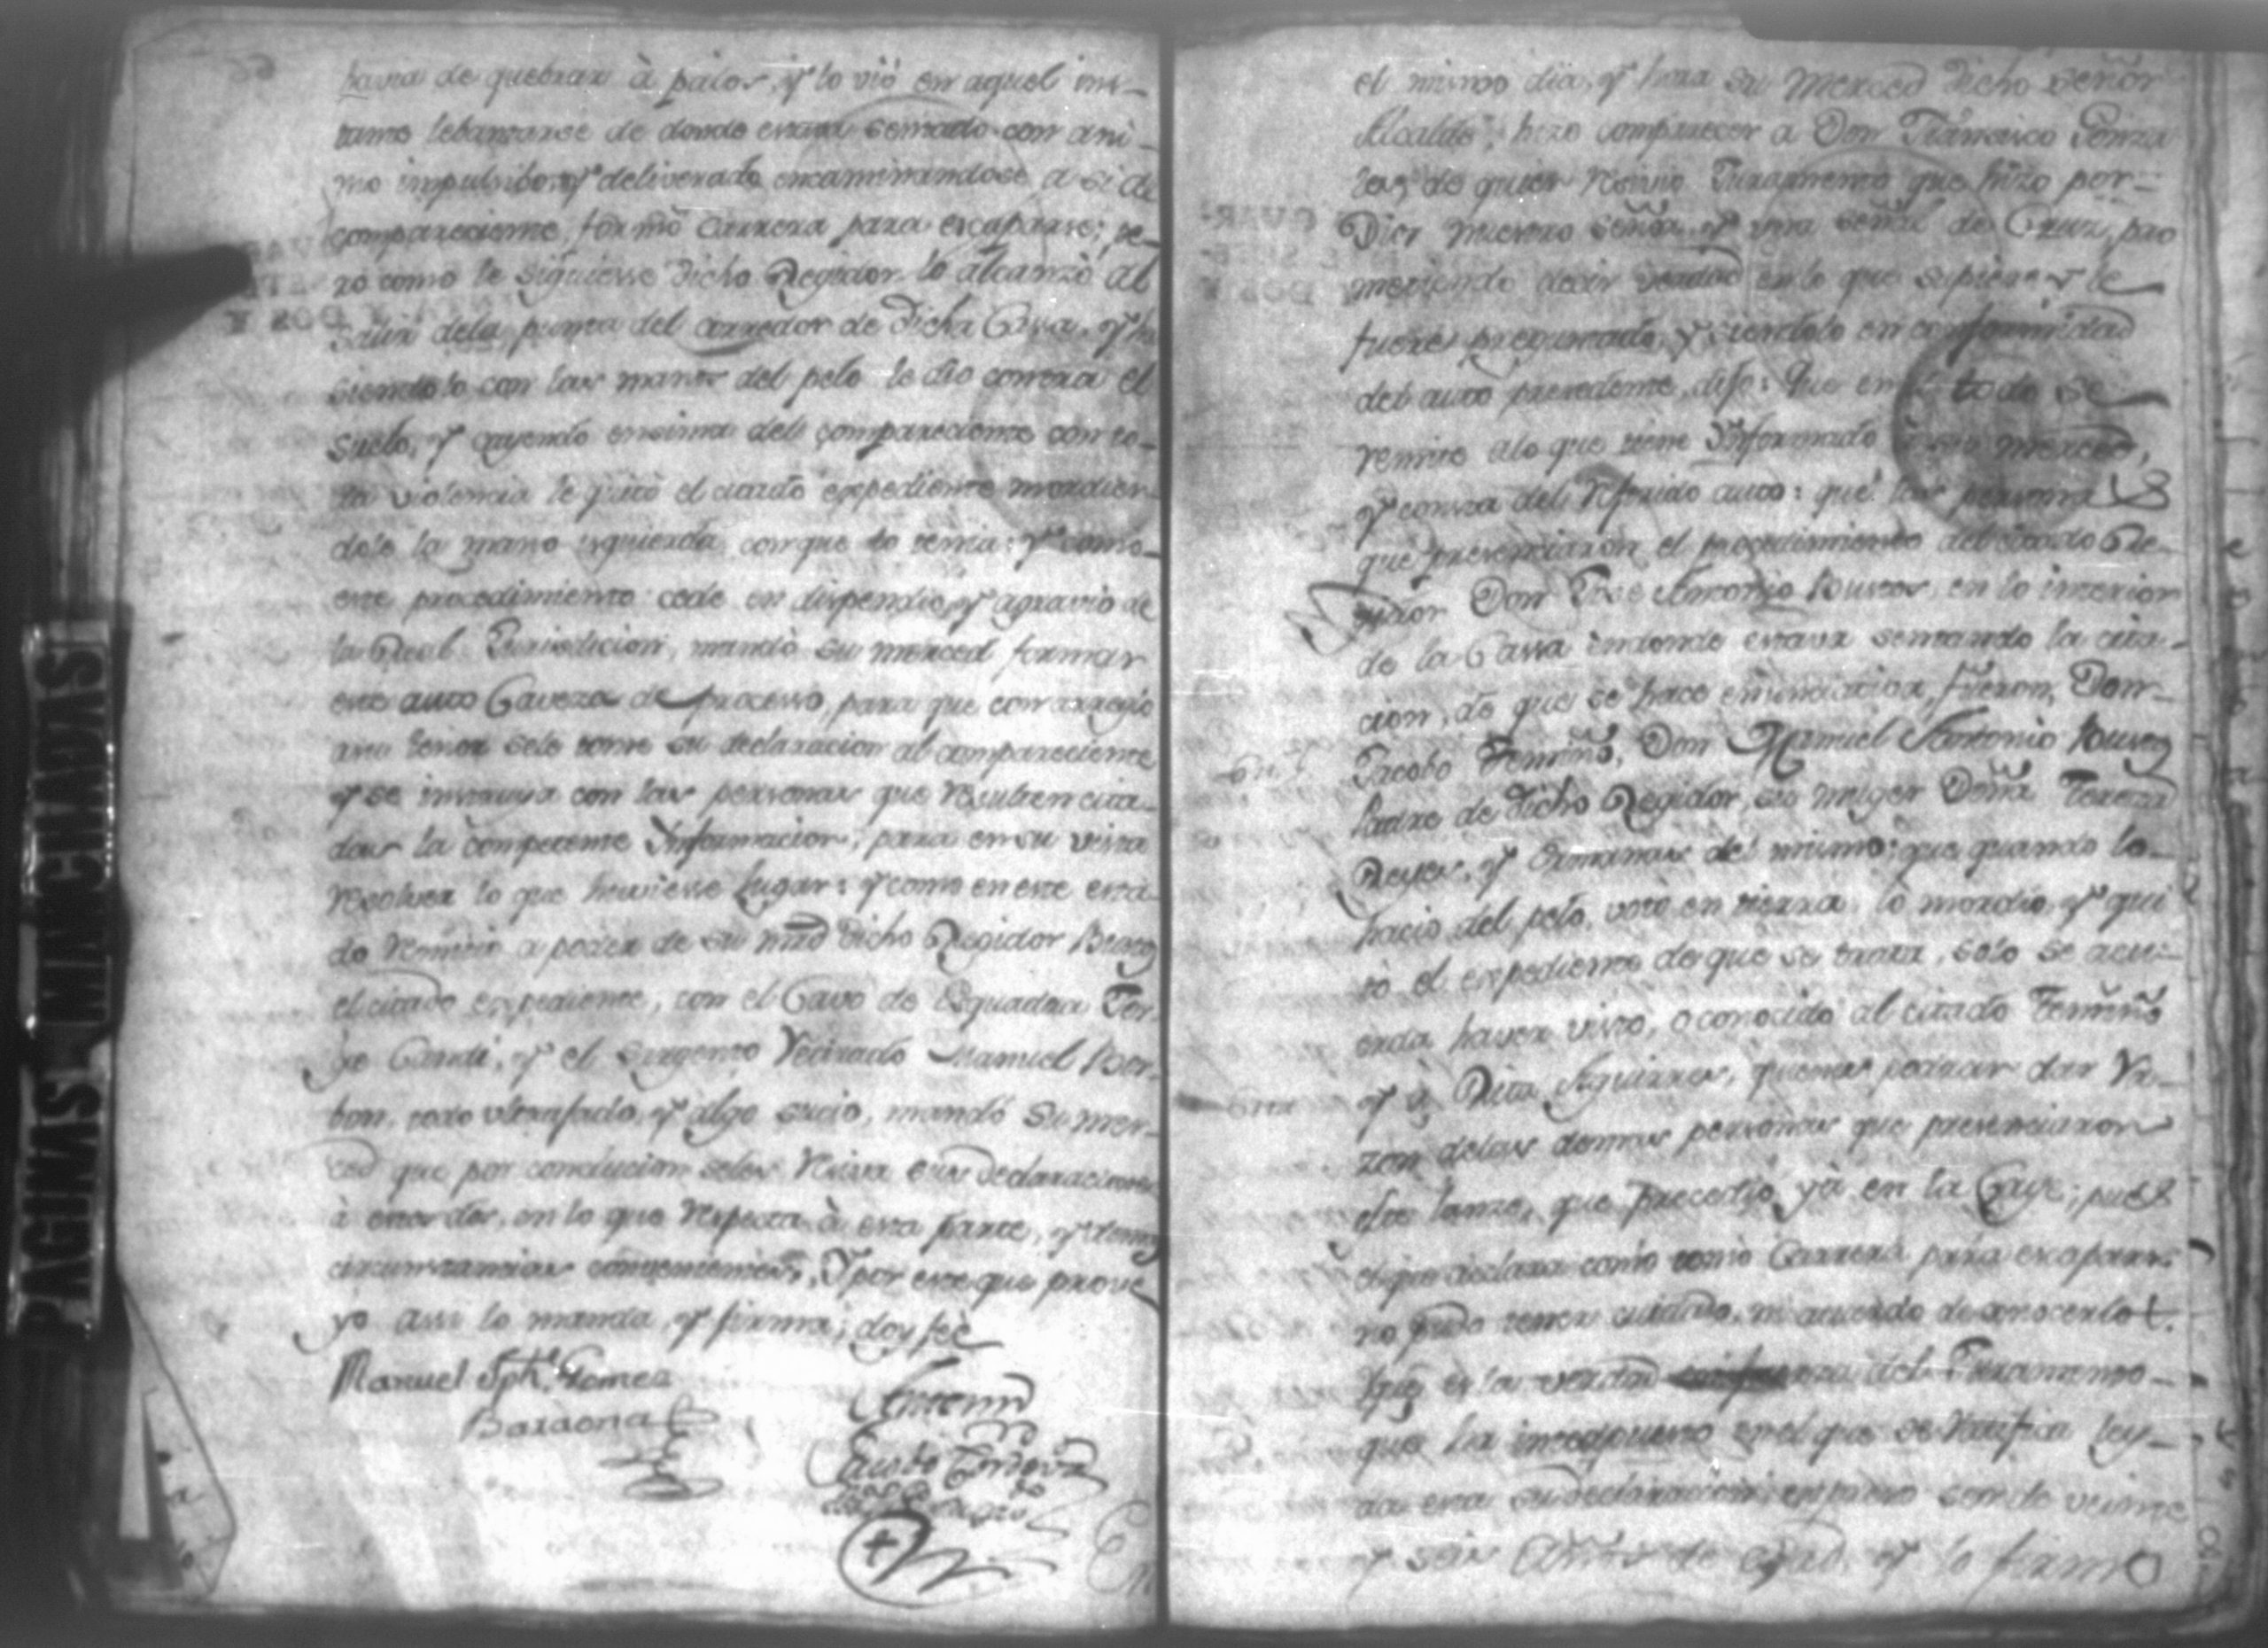 havia de quebrar à palos, y lo vió en aquel ins-
tante lebantarse de donde estava sentado con ani-
mo impulsibo, y deliverado encaminandose a si al
compareciente, formó Carrera para escaparse; pe-
ro como le siguiesse dicho Regidor lo alcanzó al
salir dela puerta del corredor de dicha Casa, y ha
siendolo con las manos del pelo le dio contra el
suelo, y cayendo ensima del compareciente con to-
da violencia le quitó el citado expediente mordien-
dole la mano isquierda con que lo tenia: y como
este procedimiento cede en dispendio, y agravio de
la Real Jurisdicion, mandó su merced formar
este auto Caveza de processo, para que con arreglo
asu tenor sele tome su declaracion al compareciente
y se instruya con las personas que resulten cita-
das la competente Informacion, para en su vista
resolver lo que huviesse lugar: y como en este esta-
do remitió a poder de su mrd dicho Regidor Bustos
el citado expediente, con el Cavo de Esquadra Jor-
ge Candi, y el Sargento Retirado Manuel Bor-
bon, todo ultrajado, y algo sucio, mandó su mer-
ced que por conclucion seles reciva sus declaraciones
à estos dos, en lo que respecta à esta parte, y demas
circunstancias combenientes, Y por este que prove
yo assi lo manda, y firma; doy feè
Manuel Jph. Gomez
Baraona
Antemi
En
el mismo dia, y hora su Merced dicho Señor
Alcalde, hizo comparecer a Don Francisco Gonza
les, de quien reciviò Juramento que hizo por
Dios nuestro Señor, y una señal de Cruz, pro
metiendo decir verdad en lo que supiere y le
fuere preguntado, y siendolo en conformidad
del auto precedente, dijo: Que en todo se
remite alo que tiene Informado à su merced,
y consta del referido auto: que las personas
que presenciaron el procedimiento del citado Re-
gidor Don Jose Antonio Bustos, en lo interior
de la Cassa endonde estava sentando la cita-
cion, de que se hace enunciativa, fueron, Don
Jacobo Temiño, Don Manuel Antonio Bustos
Padre de dicho Regidor, su muger Doña Teresa
Reyes, y Ermanas del mismo; que quando lo
hacio del pelo, votó en tierra, lo mordió, y qui
tò el expediente de que se trata, solo se acu-
erda haver visto, o conocido al citado Temiño
y à Rita Aguirres, quienes podran dar Ra-
zon delas demas personas que presenciaron
este lanze, que precedió ya en la Caye; pues
el que declara como tomó Carrera para escaparse
no pudo tener cuidado, ni acuerdo de conocerlos.
Que es la verdad del Juramento
que ha interpuesto en el que se ratifica ley-
da esta su declaracion, expresó ser de veinte
y seis Años de edad, y lo firmó
PAGINAS MANCHADAS